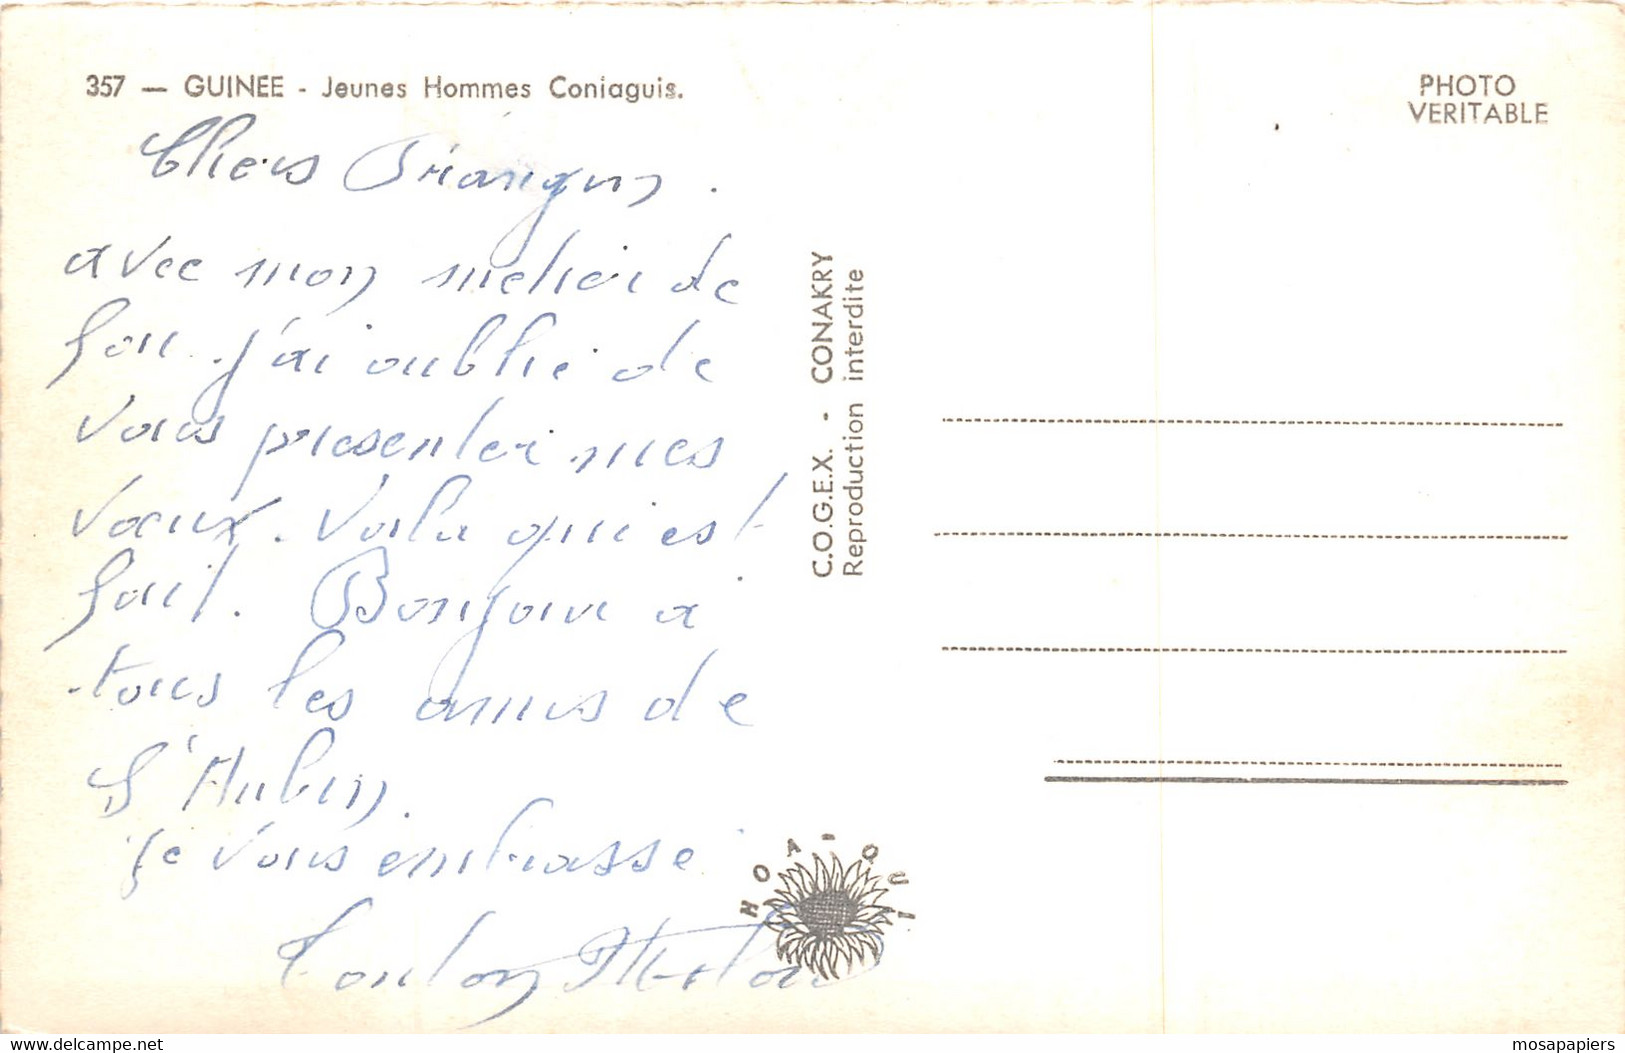 357 — GUINEE - Jeunes Hommes Coniaguis.
PHOTO
VERITABLE
Chers
avec mon metier de
fou. j'ai oublié de
vous presenter mes
voeux. Voila qui est
fait. Bonjour a
tous les amis de
S'Aubin.
je vous embrasse
C.O.G.E.X. - CONAKRY
Reproduction interdite
HOA-QUI
www.delcampe.net
mosapapiers